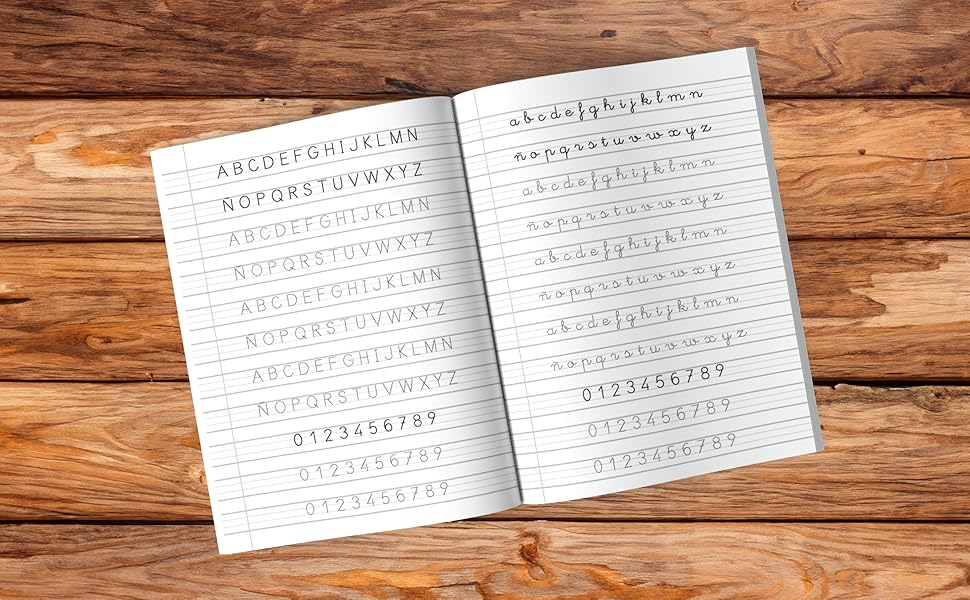 A B C D E F G H I J K L M N
Ñ O P Q R S T U V W X Y Z
A B C D E F G H I J K L M N
Ñ O P Q R S T U V W X Y Z
A B C D E F G H I J K L M N
Ñ O P Q R S T U V W X Y Z
A B C D E F G H I J K L M N
Ñ O P Q R S T U V W X Y Z
0 1 2 3 4 5 6 7 8 9
0 1 2 3 4 5 6 7 8 9
0 1 2 3 4 5 6 7 8 9
a b c d e f g h i j k l m n
ñ o p q r s t u v w x y z
a b c d e f g h i j k l m n
ñ o p q r s t u v w x y z
a b c d e f g h i j k l m n
ñ o p q r s t u v w x y z
a b c d e f g h i j k l m n
ñ o p q r s t u v w x y z
0 1 2 3 4 5 6 7 8 9
0 1 2 3 4 5 6 7 8 9
0 1 2 3 4 5 6 7 8 9